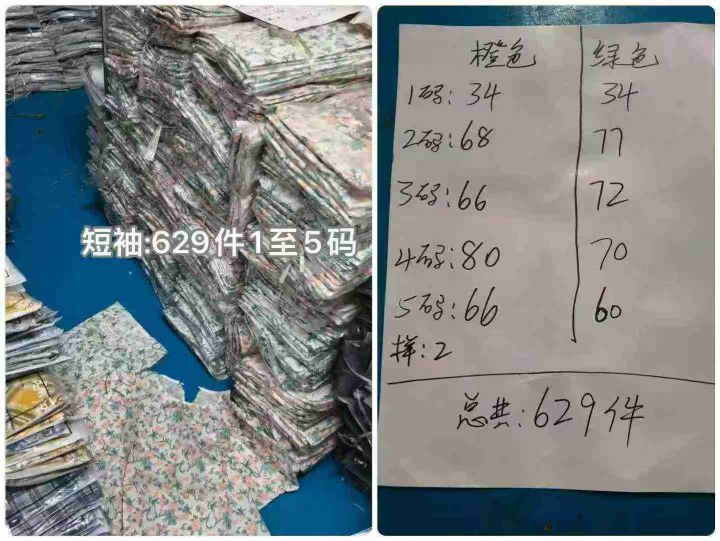 短袖:629件1至5码
橙色 绿色
1码:34 34
2码:68 77
3码:66 72
4码:80 70
5码:66 60
样:2
总共:629件